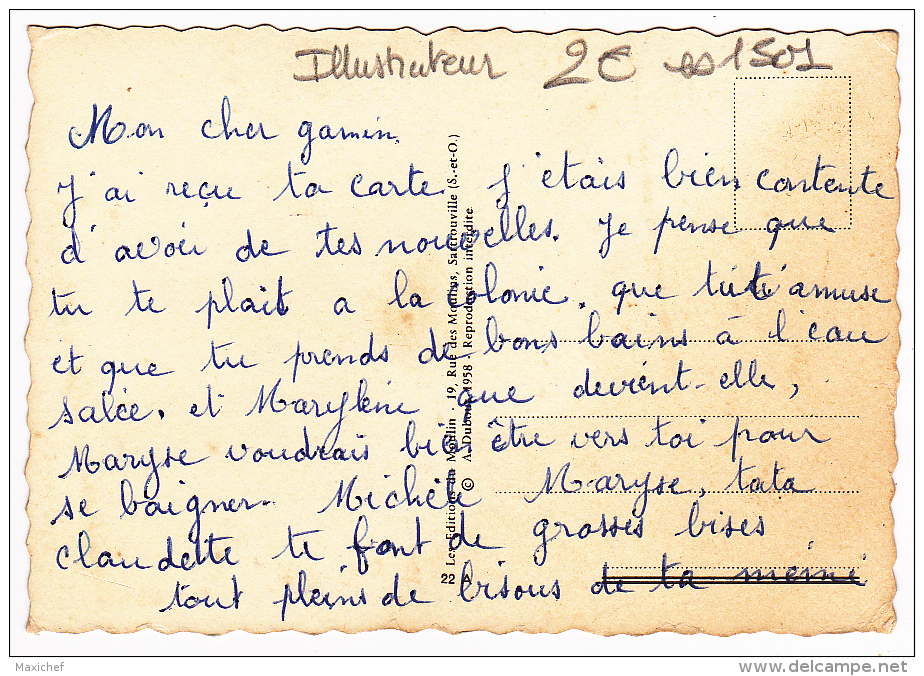 Illustrateur 2€ 1501
Mon cher gamin.
J'ai reçu ta carte. J'étais bien contente
d'avoir de tes nouvelles. Je pense que
tu te plait a la colonie, que tu t'amuse
et que tu prends de bons bains à l'eau
salée. et Marylène que devient-elle,
Maryse voudrais bien être vers toi pour
se baigner. Michèle Maryse, tata
claudette te font de grosses bises
tout pleins de bisous de ta mémé
22 A Les Editions du Moulin - 19, Rue des Moulins, Sartrouville (S.-et-O.)
© A. Dubout 1958 - Reproduction interdite
Maxichef
www.delcampe.net